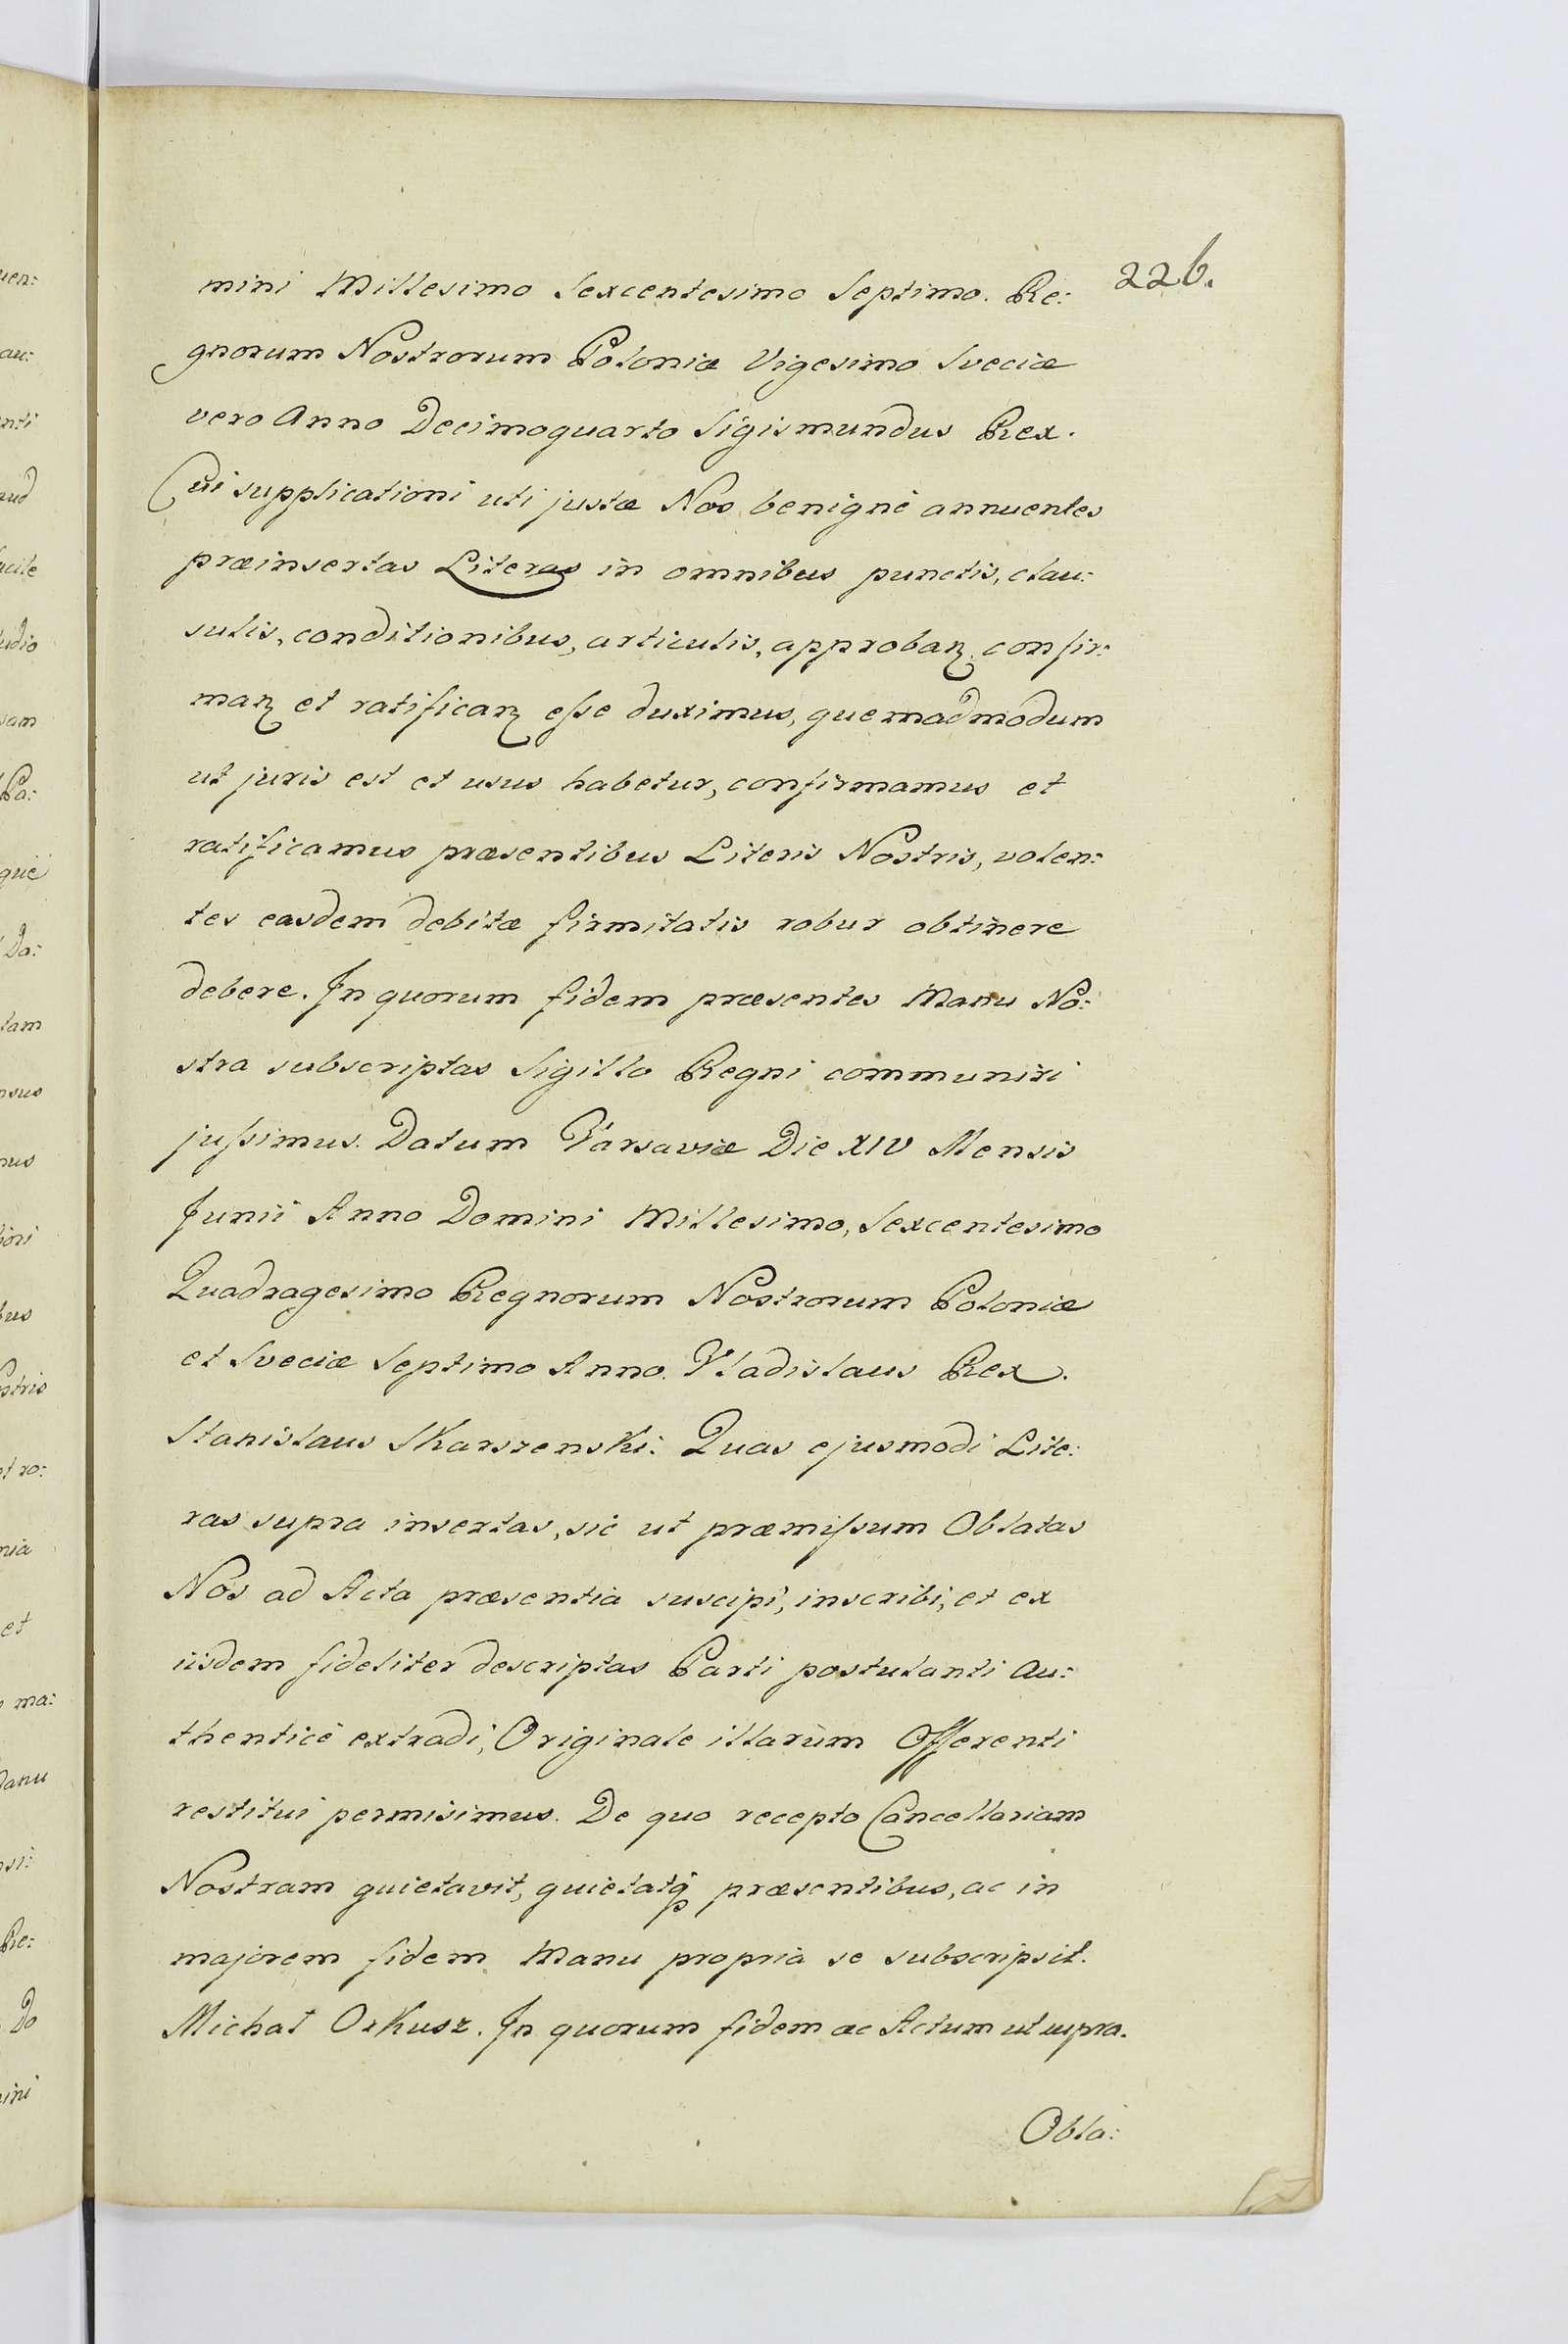 226.
mini Millesimo Sexcentesimo Septimo. Re:
gnorum Nostrorum Poloniæ Vigesimo Sveciæ
vero Anno Decimoquarto Sigismundus Rex.
Cui supplicationi uti justæ Nos benignè annuentes
præinsertas Literas in omnibus punctis, clau:
sulis, conditionibus, articulis, approbaꝝ confir:
maꝝ et ratificaꝝ eſse duximus, quemadmodum
ut juris est et usus habetur, confirmamus et
ratificamus præsentibus Literis Nostris, volen:
tes easdem debitæ firmitatis robur obtinere
debere. In quorum fidem præsentes Manu No:
stra subscriptas Sigillo Regni communiri
juſsimus. Datum Varsaviæ Die XIV Mensis
Junii Anno Domini Millesimo, Sexcentesimo
Quadragesimo Regnorum Nostrorum Poloniæ
et Sveciæ Septimo Anno. Vladislaus Rex.
Stanislaus Skarszenski: Quas ejusmodi Lite:
ras supra insertas, sic ut præmiſsum Oblatas
Nos ad Acta præsentia suscipi, inscribi, et ex
iisdem fideliter descriptas Parti postulanti Au:
thenticè extradi, Originale illarum Offerenti
restitui permisimus. De quo recepto Cancellariam
Nostram quietavit, quietatq̃ præsentibus, ac in
majorem fidem Manu propria se subscripsit.
Michał Orkusz. In quorum fidem ac Actum ut supra.
Obla: